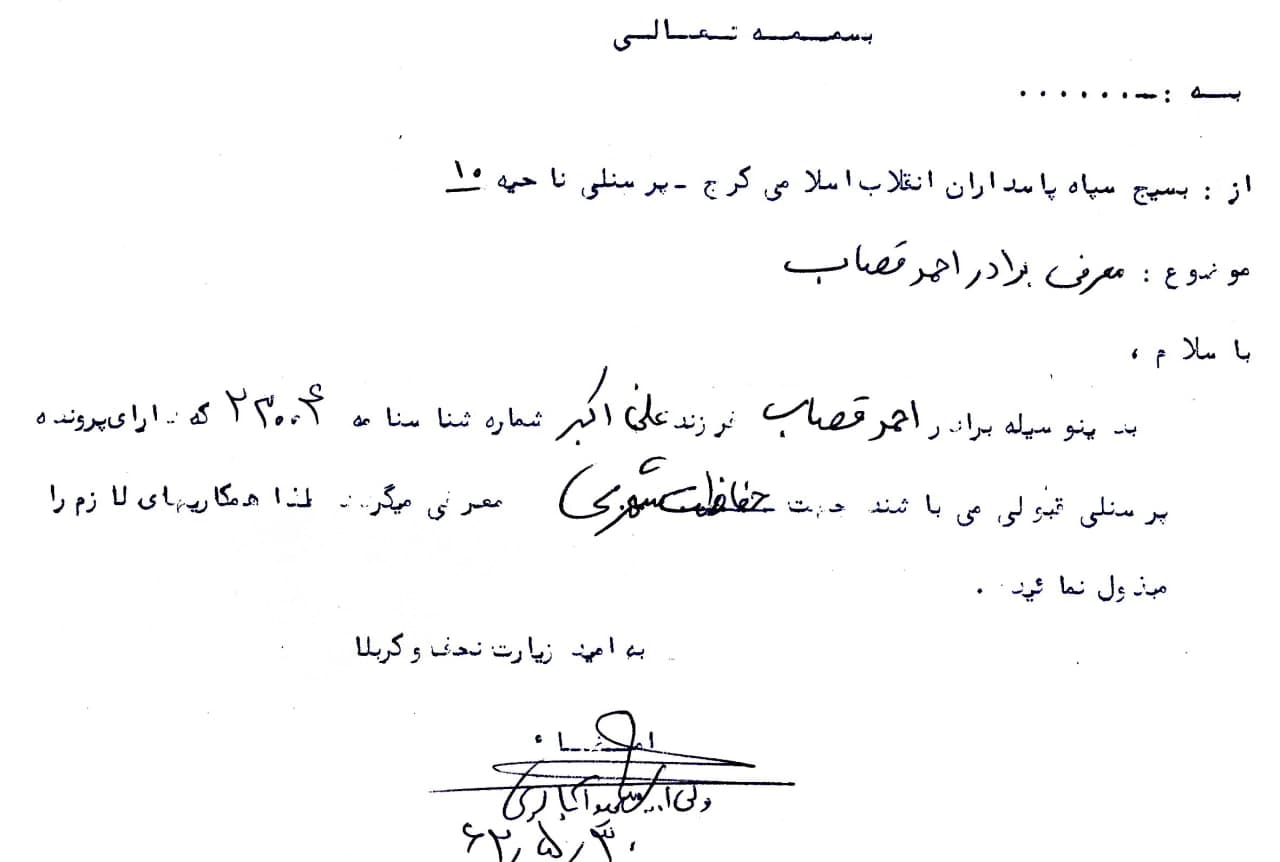 بسمه تعالی
به :-......
از : بسیج سپاه پاسداران انقلاب اسلامی کرج - پرسنلی ناحیه ۱۰
موضوع : معرفی برادر احمد قصاب
با سلام ،
بدینوسیله برادر احمد قصاب فرزند علی اکبر شماره شناسنامه ۲۳۰۰۴ که دارای پرونده
پرسنلی قبولی می باشند جهت حفاظت شهری معرفی میگردد لذا همکاریهای لازم را
مبذول نمائید .
به امید زیارت نجف و کربلا
امضاء
۶۲٫۵٫۳۰